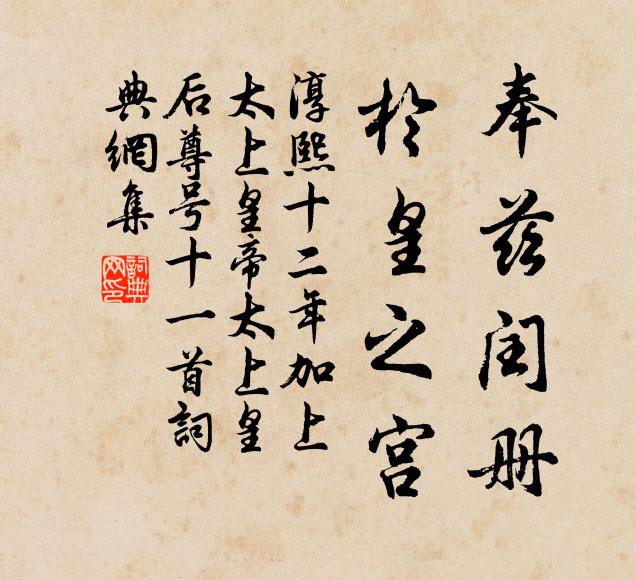 奉兹闰册
於皇之宫
淳熙十二年加上
太上皇帝太上皇
后尊号十一首詞
典網集
詞典网印